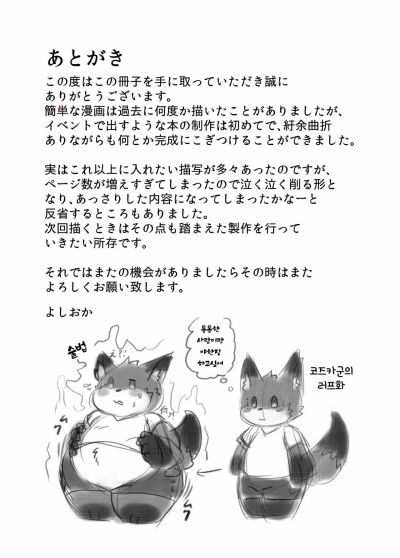 あとがき
この度はこの冊子を手に取っていただき誠に
ありがとうございます。
簡単な漫画は過去に何度か描いたことがありましたが、
イベントで出すような本の制作は初めてで、紆余曲折
ありながらも何とか完成にこぎつけることができました。
実はこれ以上に入れたい描写が多々あったのですが、
ページ数が増えすぎてしまったので泣く泣く削る形と
なり、あっさりした内容になってしまったかなーと
反省するところもありました。
次回描くときはその点も踏まえた製作を行って
いきたい所存です。
それではまたの機会がありましたらその時はまた
よろしくお願い致します。
よしおか
뚱뚱한
사람이랑
야한짓
하고싶어
술렁
え?!
코트카군의
러프화
ムワ
ムワ